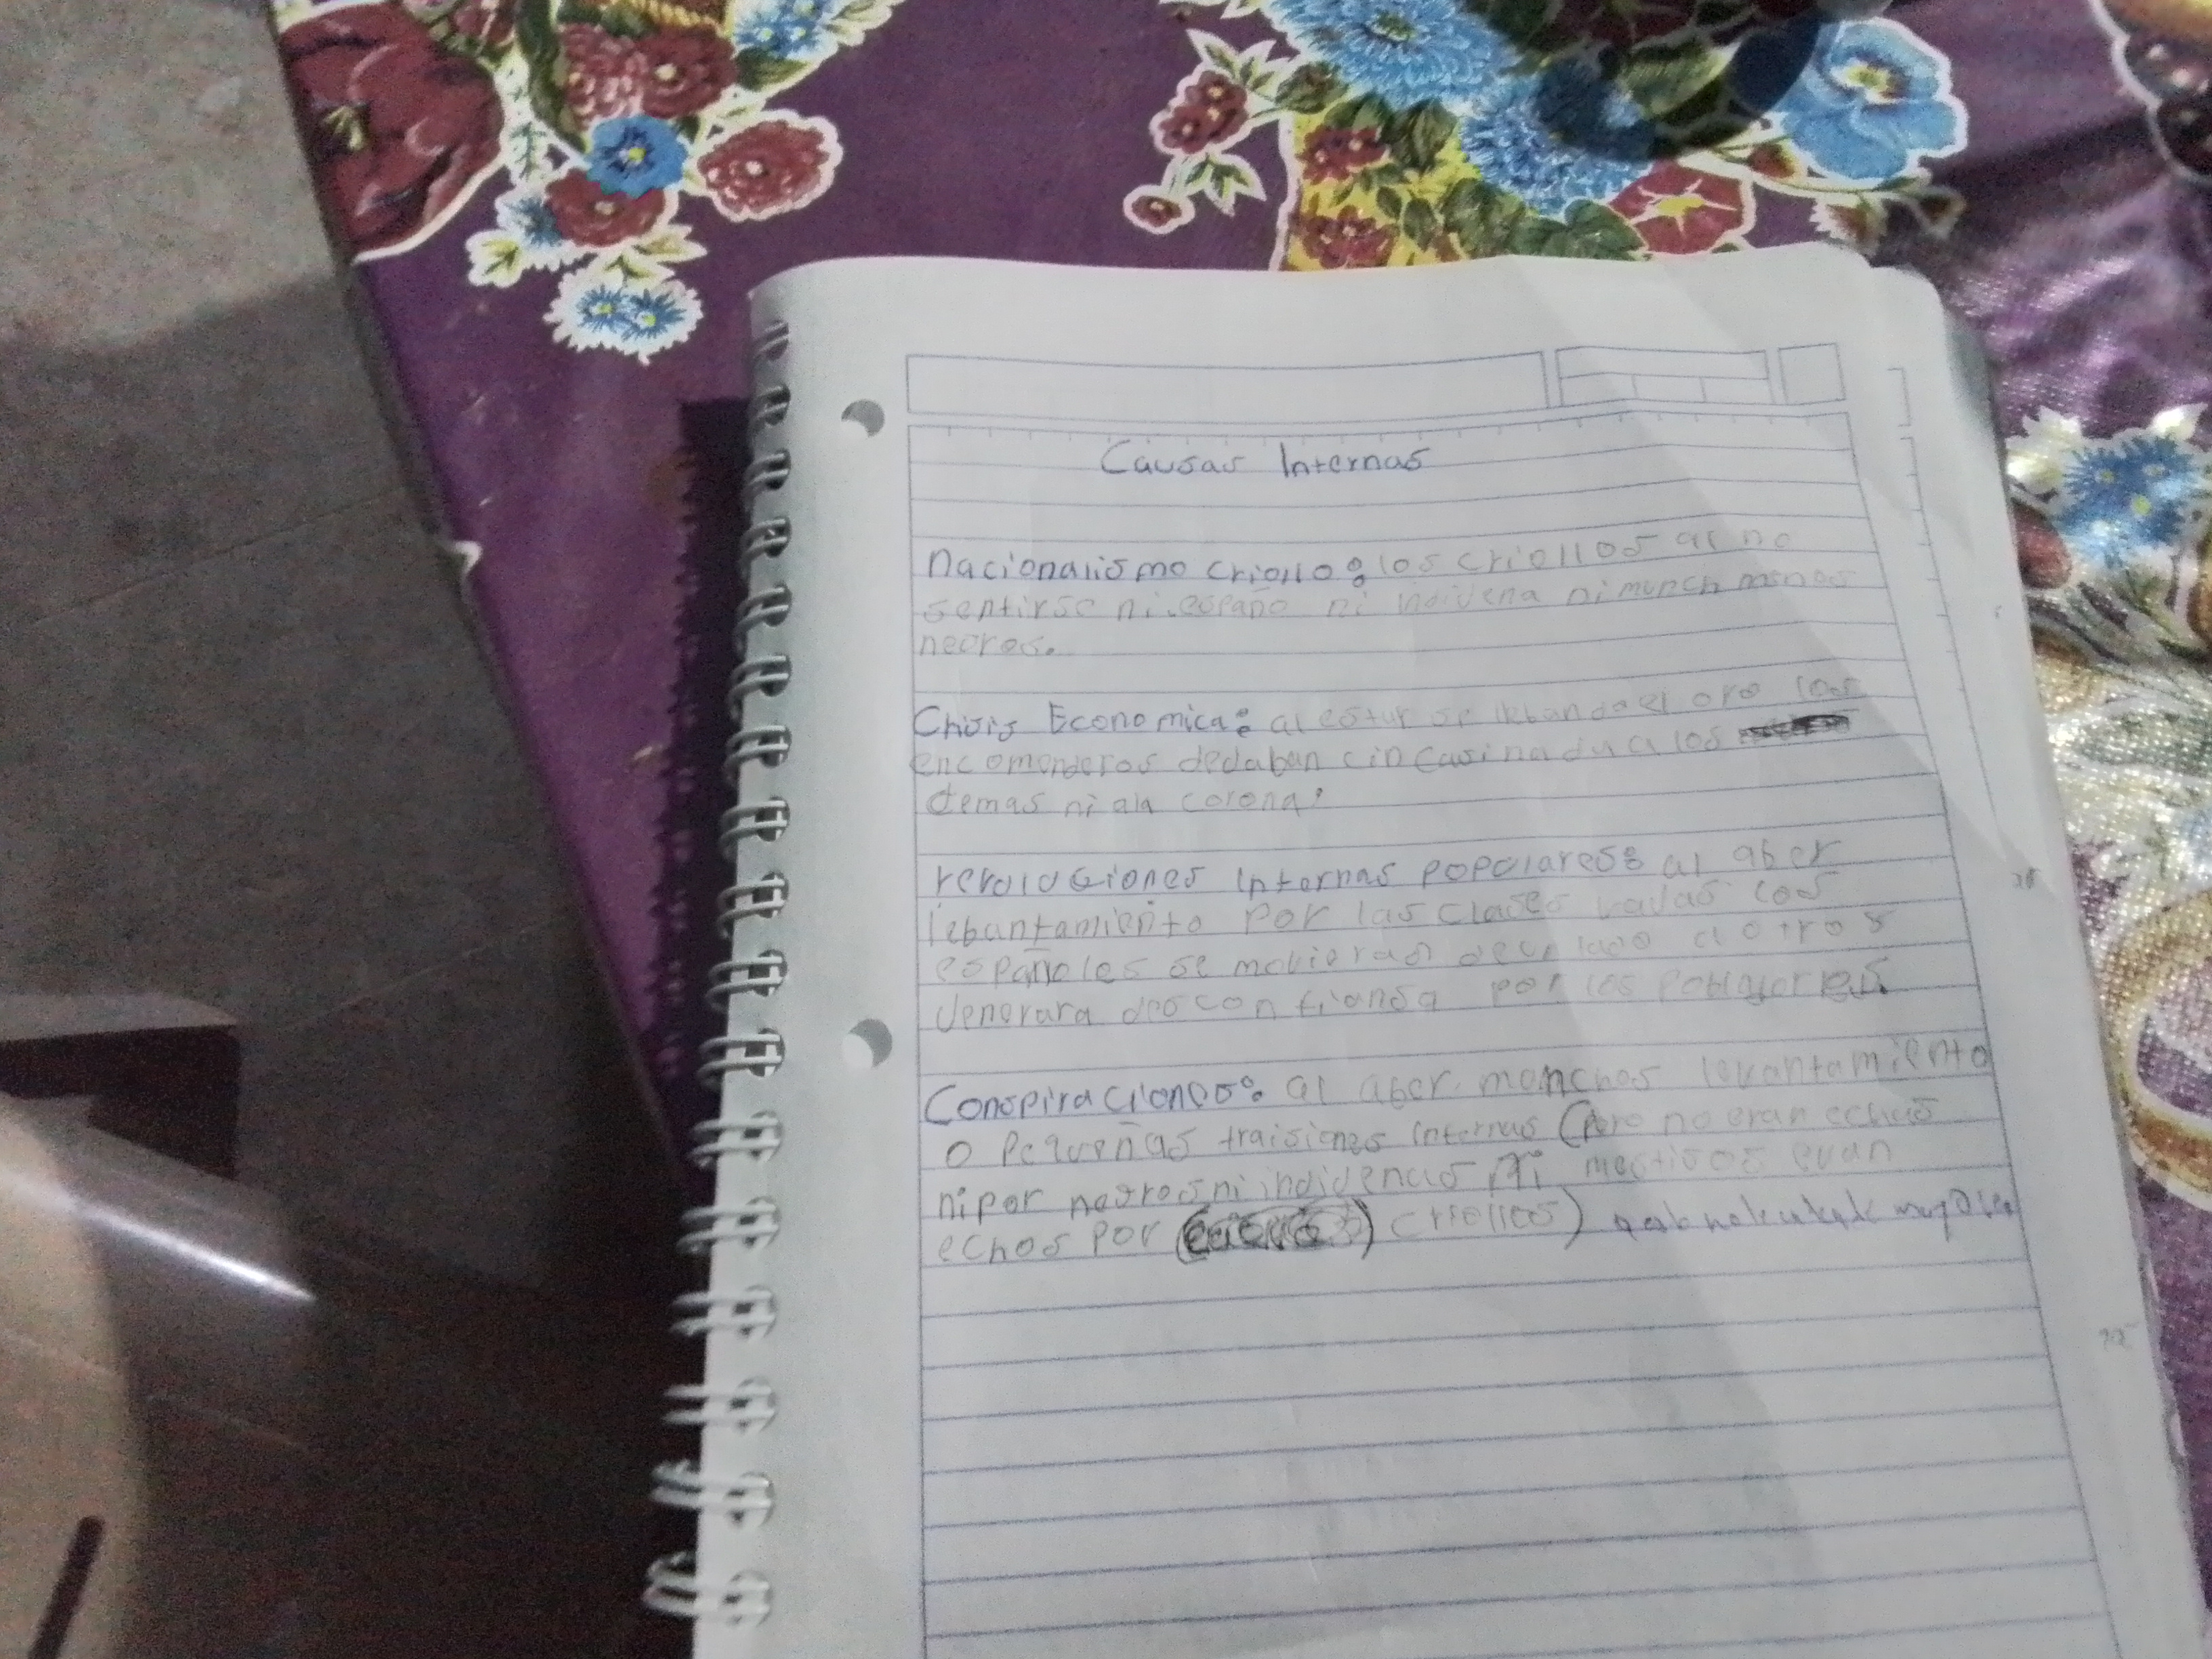 Causas Internas
nacionalismo criollo: los criollos al no
sentirse ni españo ni indivena ni munch menos
negros.
Chisis Economica: al estar se el oro los
encomenderos dedaban cin casi nada a los
demas ni ala corona.
revoluciones Internas populares: al aber
lebantamiento por las clases vajas los
españoles se movieran de un lado a otro y
venerara desconfiansa por los pobladores.
Conspiraciones: al aber monchos levantamiento
o pequeñas traisiones internas (pero no eran echas
ni por negros ni indivenas ni mestisos eran
echos por criollos)